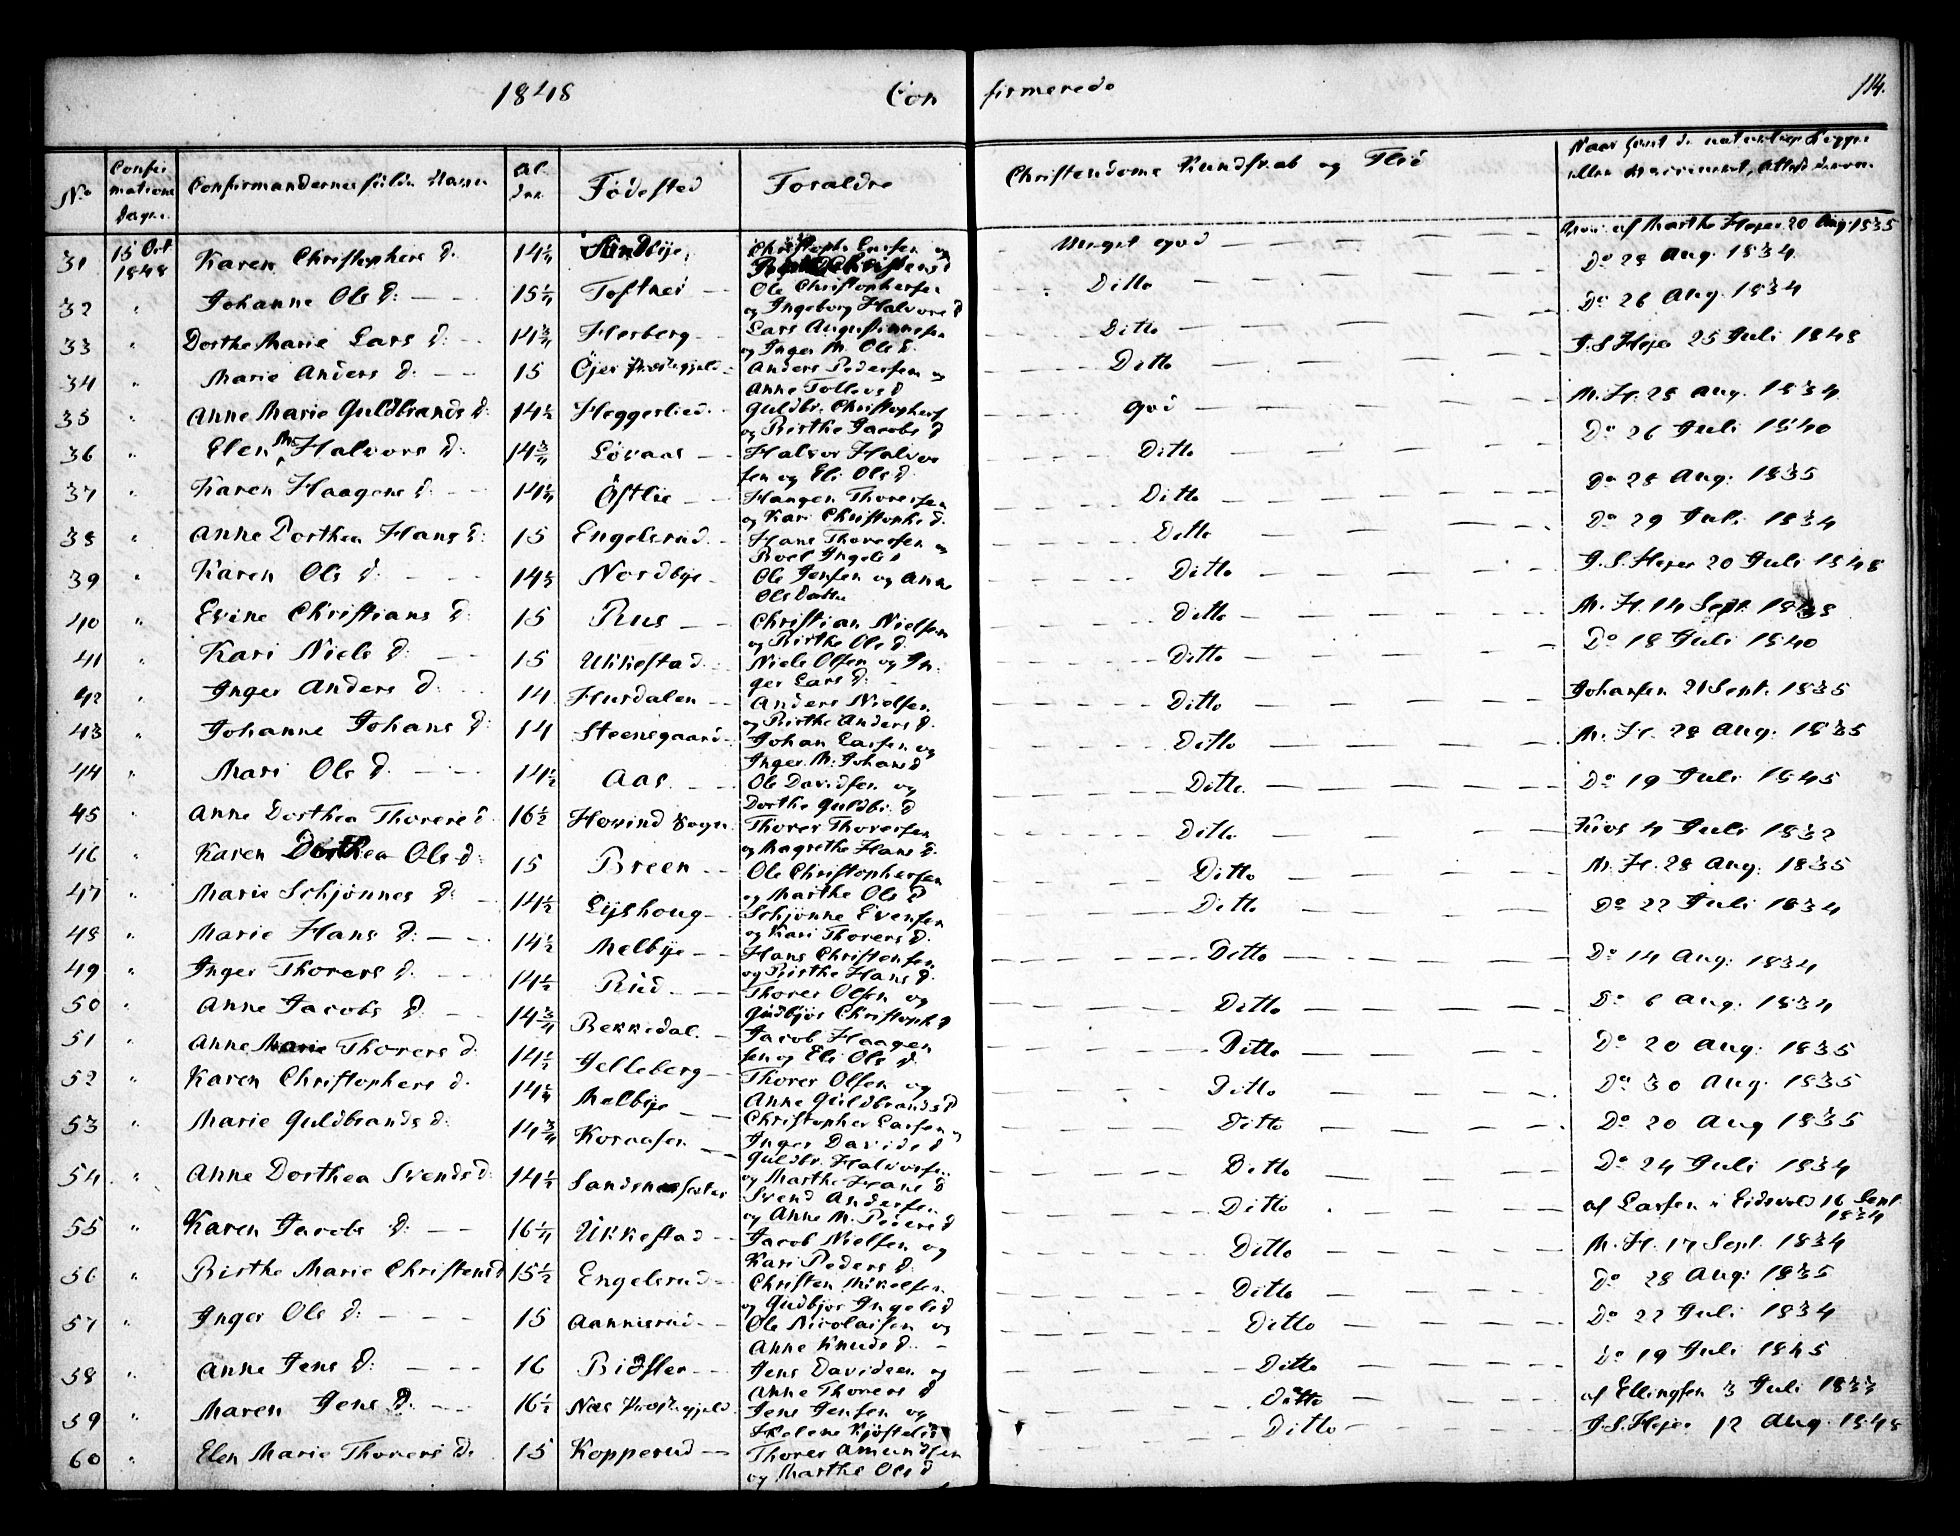 1848 Con firmerede 114.
No Confirmations Dagen. Confirmandernes fulde Navn Alder Fødested Forældre Christendoms Kundskab og Flid Naar havt de naturlige Kopper eller vaccineret, Attest derom
31 15 Oct 1848 Karen Christophers d. 14¼ Sundbye, Christoph. Larsen og Meget god af Marthe Høyer 20 Aug. 1835
32 " Johanne Ols d: 15¼ Toftnei Ole Christophersen og Ingeborg Halvors d Ditto Do 28 Aug. 1834
33 " Dorthe Marie Lars d: 14¾ Herberg Lars Augustinnesen og Inger M. Ols d. Ditto Do 26 Aug. 1834
34 " Marie Anders d: 15 Öjer Præstegjeld Anders Pedersen og Anne Tollevs d Ditto J.S. Høyer 25 Juli 1848
35 " Anne Marie Guldbrands d: 14½ Heggerlied Guldbr. Christophers og Birthe Jacobs d god M. H. 28 Aug. 1834
36 " Elen M. Halvors d: 14¾ Lövaas Halvor Halvorsen og Eli Ols d. Ditto Do 26 Juli 1840
37 " Karen Haagens d: 14¼ Östlie Haagen Thoresen og Kari Christophs d. Ditto Do 28 Aug. 1835
38 " Anne Dorthea Hans d: 15 Engelsrud Hans Thoresen og Boel Ingels d Ditto Do 29 Juli 1834
39 " Karen Ols d: 14½ Nordbye Ole Jensen og Anne Ols Datter Ditto J.S. Høyer 20 Juli 1848
40 " Evine Christians d: 15 Rus Christian Nielsen og Birthe Ols d. Ditto M. H. 14 Sept. 1838
41 " Kari Niels d: 15 Ukkestad Niels Olsen og Inger Lars d: Ditto Do 18 Juli 1840
42 " Inger Anders d: 14 Hurdalen Anders Nielsen og Birthe Anders d. Ditto Johansen 21 Sept. 1835
43 " Johanne Johans d: 14 Steensgaard Johan Larsen og Inger M. Johans d Ditto M. H. 28 Aug. 1835
44 " Mari Ols d: 14½ Aas Ole Davidsen og Dorthe Guldbr. d Ditto Do 19 Juli 1845
45 " Anne Dorthea Thorers d 16½ Hovind Sogn Thorer Thoresen og Magrethe Hans d. Ditto 4 Juli 1832
46 " Karen Dorthea Ols d: 15 Breen Ole Christophersen og Marthe Ols d Ditto M. H. 28 Aug: 1835
47 " Marie Schjönnes d: 14½ Lyshoug Schjönne Evensen og Kari Thorers d. Ditto Do 22 Juli 1834
48 " Marie Hans d: 14½ Melbye Hans Christensen og Birthe Hans d. Ditto Do 14 Aug: 1834
49 " Inger Thorers d. 14½ Rud Thorer Olsen og Gudbjör Christoph. d Ditto Do 6 Aug. 1834
50 " Anne Jacobs d: 14¾ Bekkedal Jacob Haagensen og Eli Ols d. Ditto Do 20 Aug: 1835
51 " Anne Marie Thorers d. 14½ Jelleberg Thorer Olsen og Anne Guldbrands d Ditto Do 30 Aug: 1835
52 " Karen Christophers d. 14¼ Melbye Christopher Larsen og Inger Davids d Ditto Do 20 Aug 1835
53 " Marie Guldbrands d: 14¾ Koraasen Guldbr. Halvorsen og Marthe Hans d Ditto Do 24 Juli 1834
54 " Anne Dorthea Svends d: 14½ Svend Andersen og Anne M. Peders d Ditto af Larsen i Eidsvold 16 Sept 1834
55 " Karen Jacobs d: 16¼ Ukkestad Jacob Nielsen og Kari Peders d. Ditto M. H. 17 Sept. 1834
56 " Birthe Marie Christensd 15½ Engelsrud Christen Mikelsen og Gudbjör Ingels d Ditto Do 28 Aug: 1835
57 " Inger Ols d: 15 Aannisrud Ole Nicolaisen og Anne Knuds d. Ditto Do 22 Juli 1834
58 " Anne Jens d: 16 Bidsler Jens Davidsen og Anne Thorers d Ditto Do 19 Juli 1845
59 " Maren Jens d. 16½ Næs Præstegjeld Jens Jensen og Helene Kjöstelsd Ditto af Ellingsen 3 Juli 1833
60 " Elen Marie Thorers d. 15 Kopperud Thorer Amundsen og Marthe Ols d Ditto J.S. Høyer 12 Aug. 1848